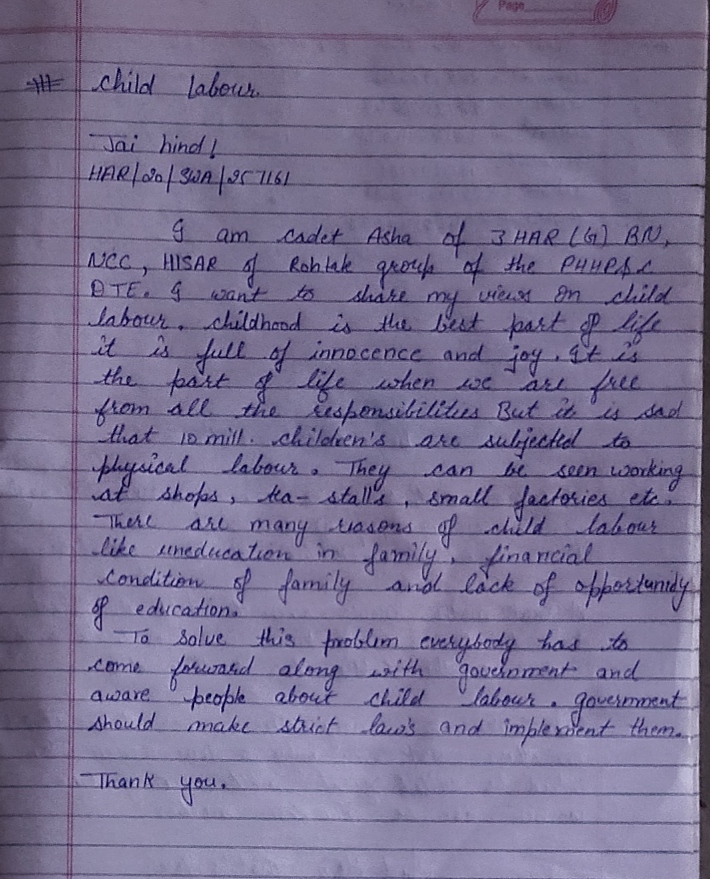 Page
child labour.
Jai hind!
HAR/20/SWA/257161
I am cadet Asha of 3 HAR (G) BN,
NCC, HISAR of Rohtak group of the PHHP&C
DTE. I want to share my views on child
labour. childhood is the best part of life
it is full of innocence and joy. It is
the part of life when we are free
from all the responsibilities But it is sad
that 10 mill. children's are subjected to
physical labour. They can be seen working
at shops, tea-stalls, small factories etc.
There are many reasons of child labour
like uneducation in family, financial
condition of family and lack of opportunidy
of education.
To solve this problem everybody has to
come forward along with government and
aware people about child labour. government
should make strict law's and implement them.
Thank you.